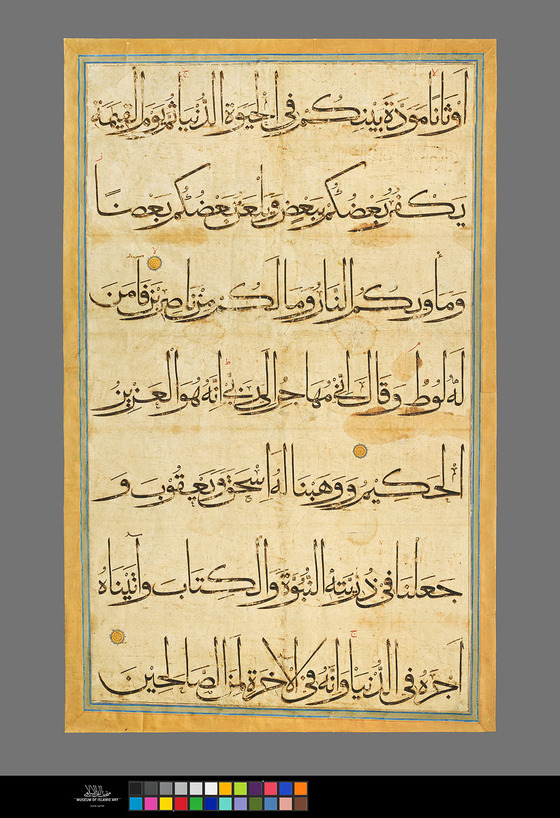 اَوْثَانًا مَوَدَّةَ بَيْنِكُمْ فِي الْحَيٰوةِ الدُّنْيَا ثُمَّ يَوْمَ الْقِيٰمَةِ
يَكْفُرُ بَعْضُكُمْ بِبَعْضٍ وَيَلْعَنُ بَعْضُكُمْ بَعْضًا
وَمَأْوٰيكُمُ النَّارُ وَمَا لَكُمْ مِنْ نَاصِرِينَ فَآمَنَ
لَهُ لُوطٌ وَقَالَ اِنِّي مُهَاجِرٌ اِلٰى رَبِّي اِنَّهُ هُوَ الْعَزِيزُ
الْحَكِيمُ وَوَهَبْنَا لَهُ اِسْحٰقَ وَيَعْقُوبَ وَ
جَعَلْنَا فِي ذُرِّيَّتِهِ النُّبُوَّةَ وَالْكِتَابَ وَآتَيْنَاهُ
اَجْرَهُ فِي الدُّنْيَا وَاِنَّهُ فِي الْاٰخِرَةِ لَمِنَ الصَّالِحِينَ
MUSEUM OF ISLAMIC ART